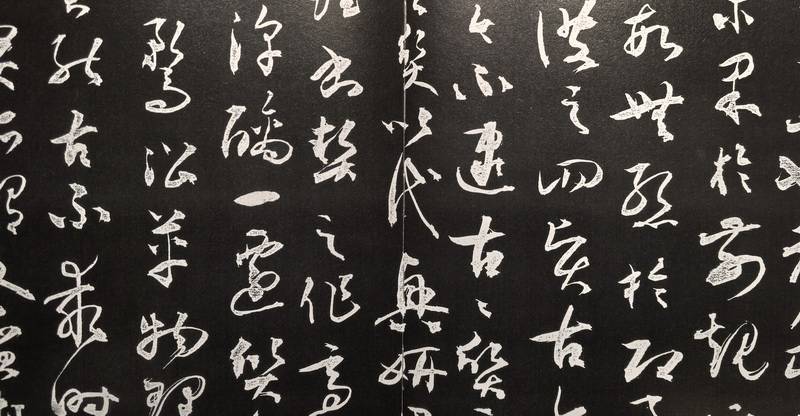 未果於前規
故無慙於即
彼之四賢古
今不逮古々質
質以代興妍
書契之作適
淳醨一遷質
鶩沿革物理
能古不乖時